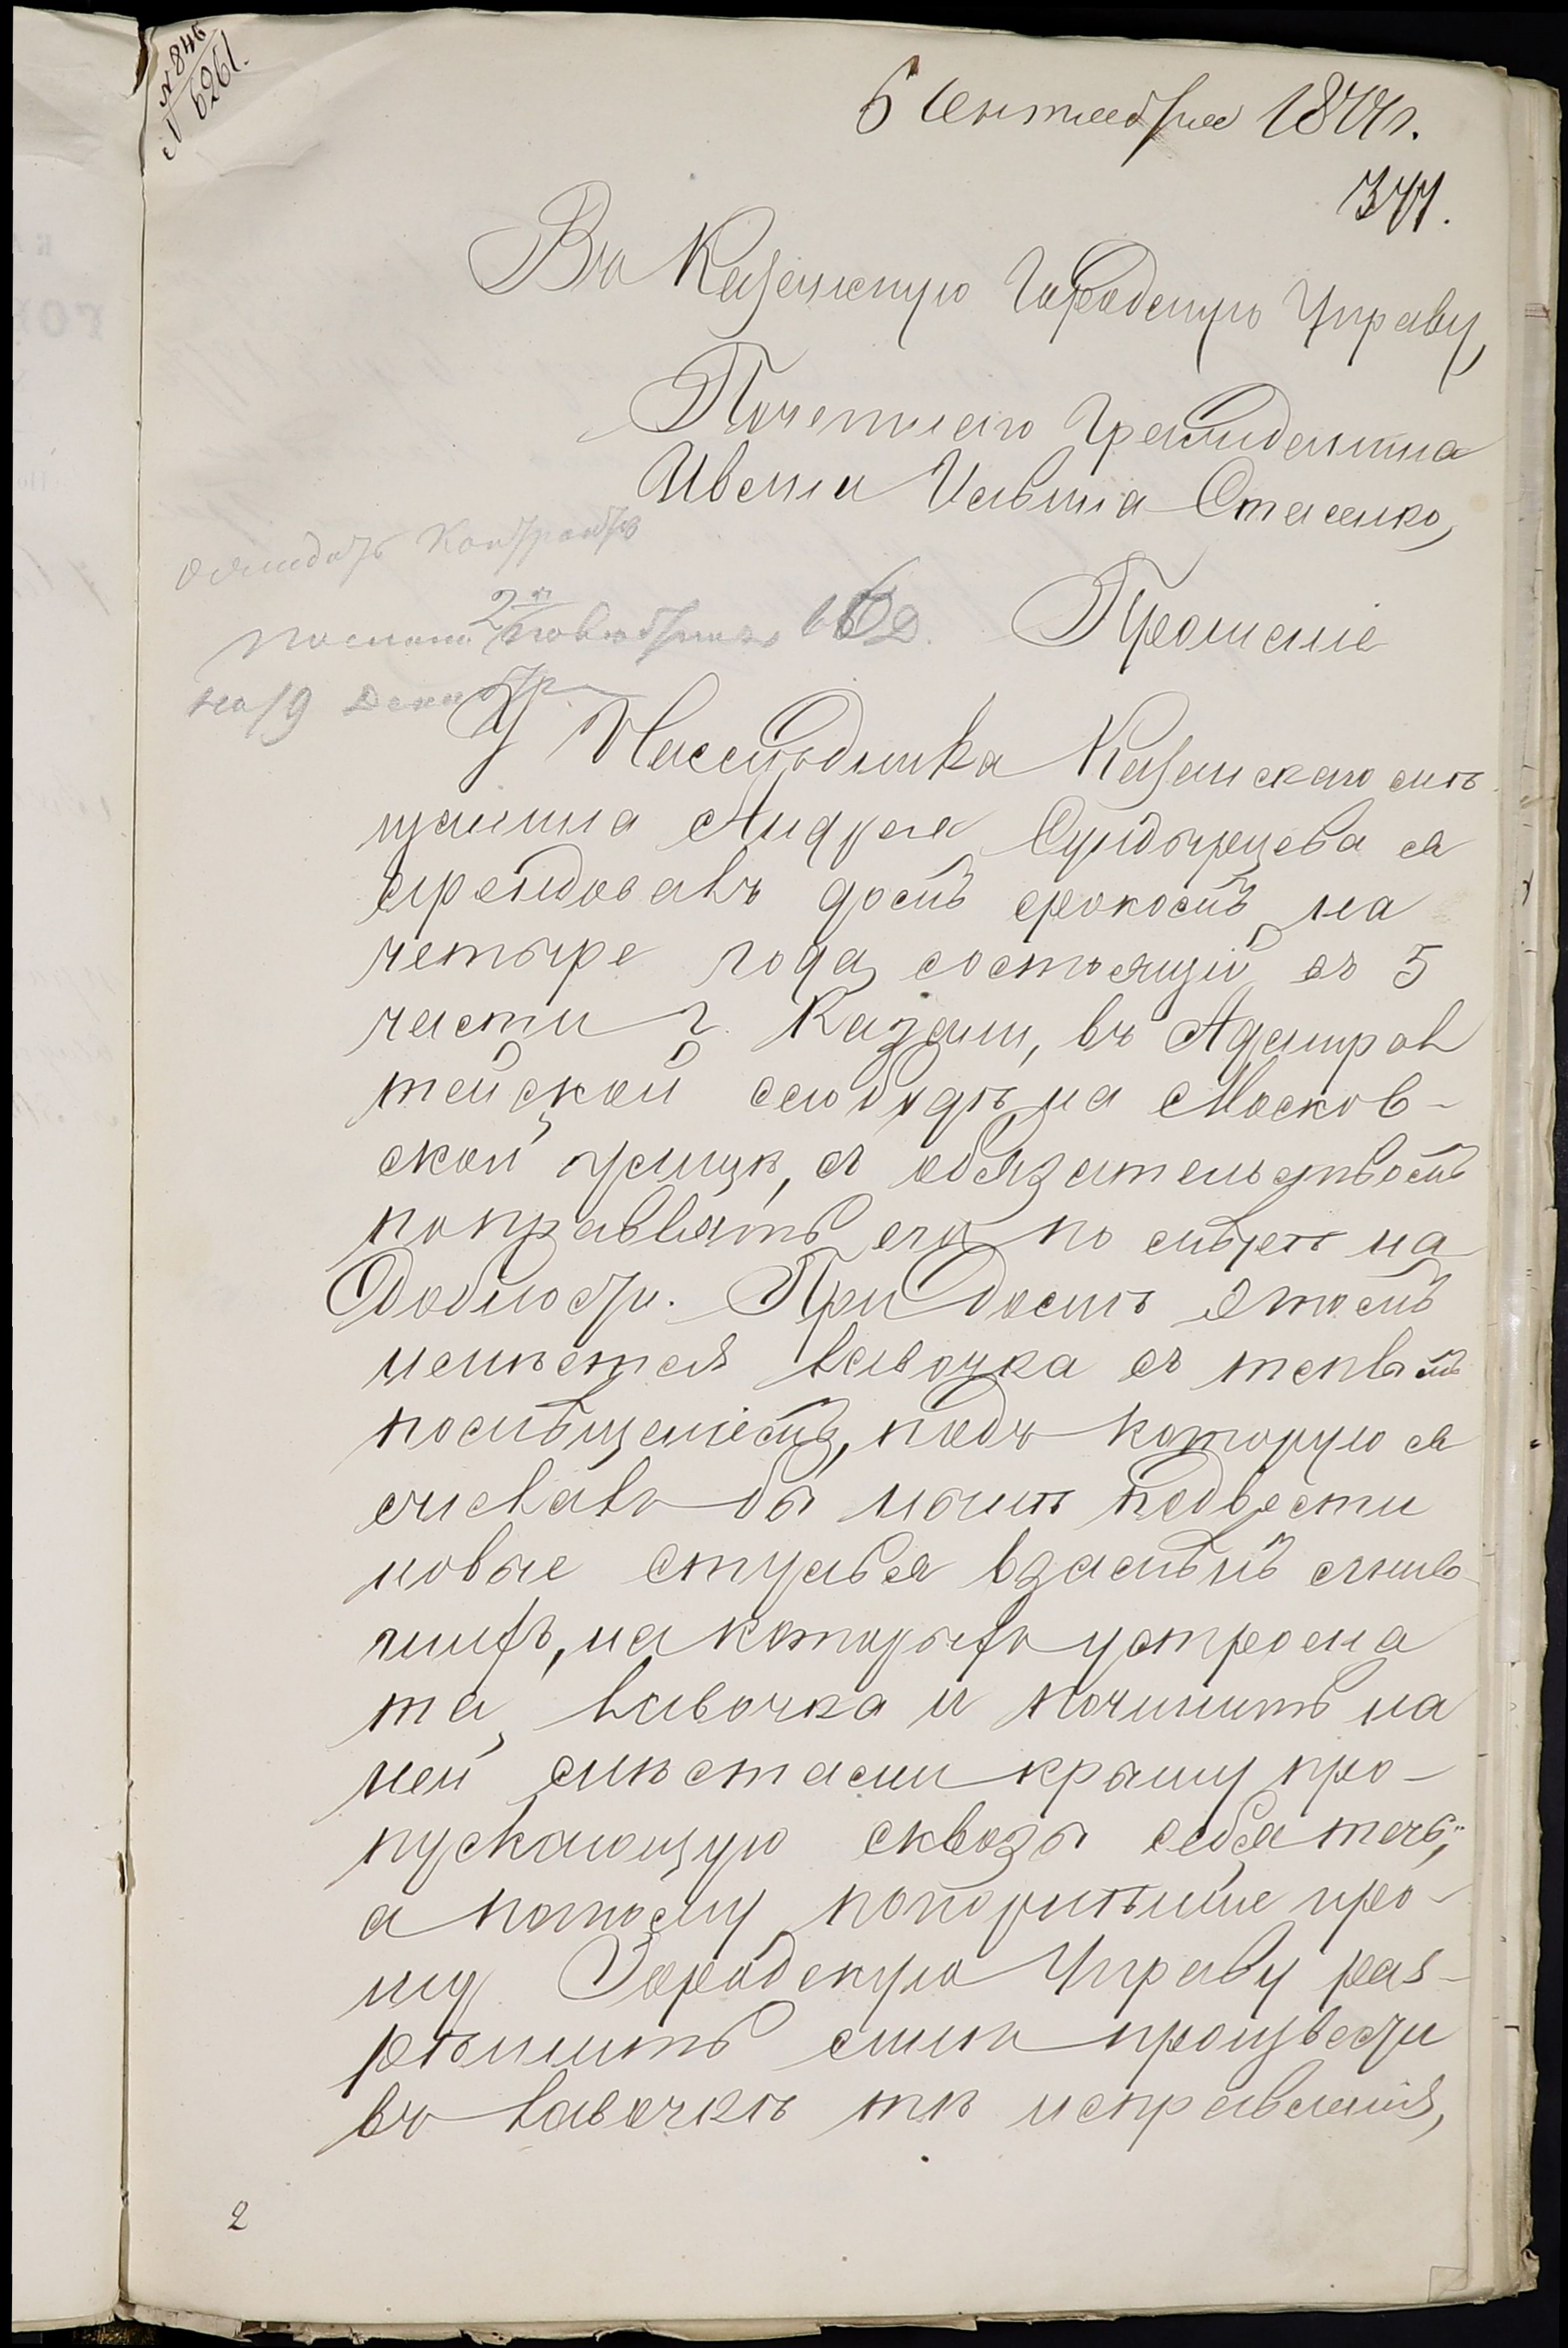 N 846
6261.
6 Сентября 1877г.
377.
Въ Казанскую Городскую Управу,
Почетнаго Гражданина
Ивана Ильина Стасенко,
Контрактъ
2го Ноября
на 19 Декабря
Прошеніе
У Насслѣдника Казанскаго мѣ
щанина Андрея Сундырцева я
арендовалъ домъ срокомъ на
четыре года, состоящій въ 5
части г. Казани, въ Адмирал
тейской слободѣ на Москов-
ской улицѣ, съ обязательствомъ
поправлять его по мѣрѣ на
добности. При домѣ этомъ
имѣется лавочка съ теплымъ
помѣщеніемъ, подъ которую я
желалъ бы нынѣ подвести
новые стулья взамѣнъ сгнив
шихъ, на которыхъ устроена
та лавочка и починить на
ней мѣстами крышу про-
пускающую сквозь себя течь;
а потому покорнѣйше про-
шу Городскую Управу раз-
рѣшить мнѣ произвести
въ лавочкѣ тѣ исправленія,
2